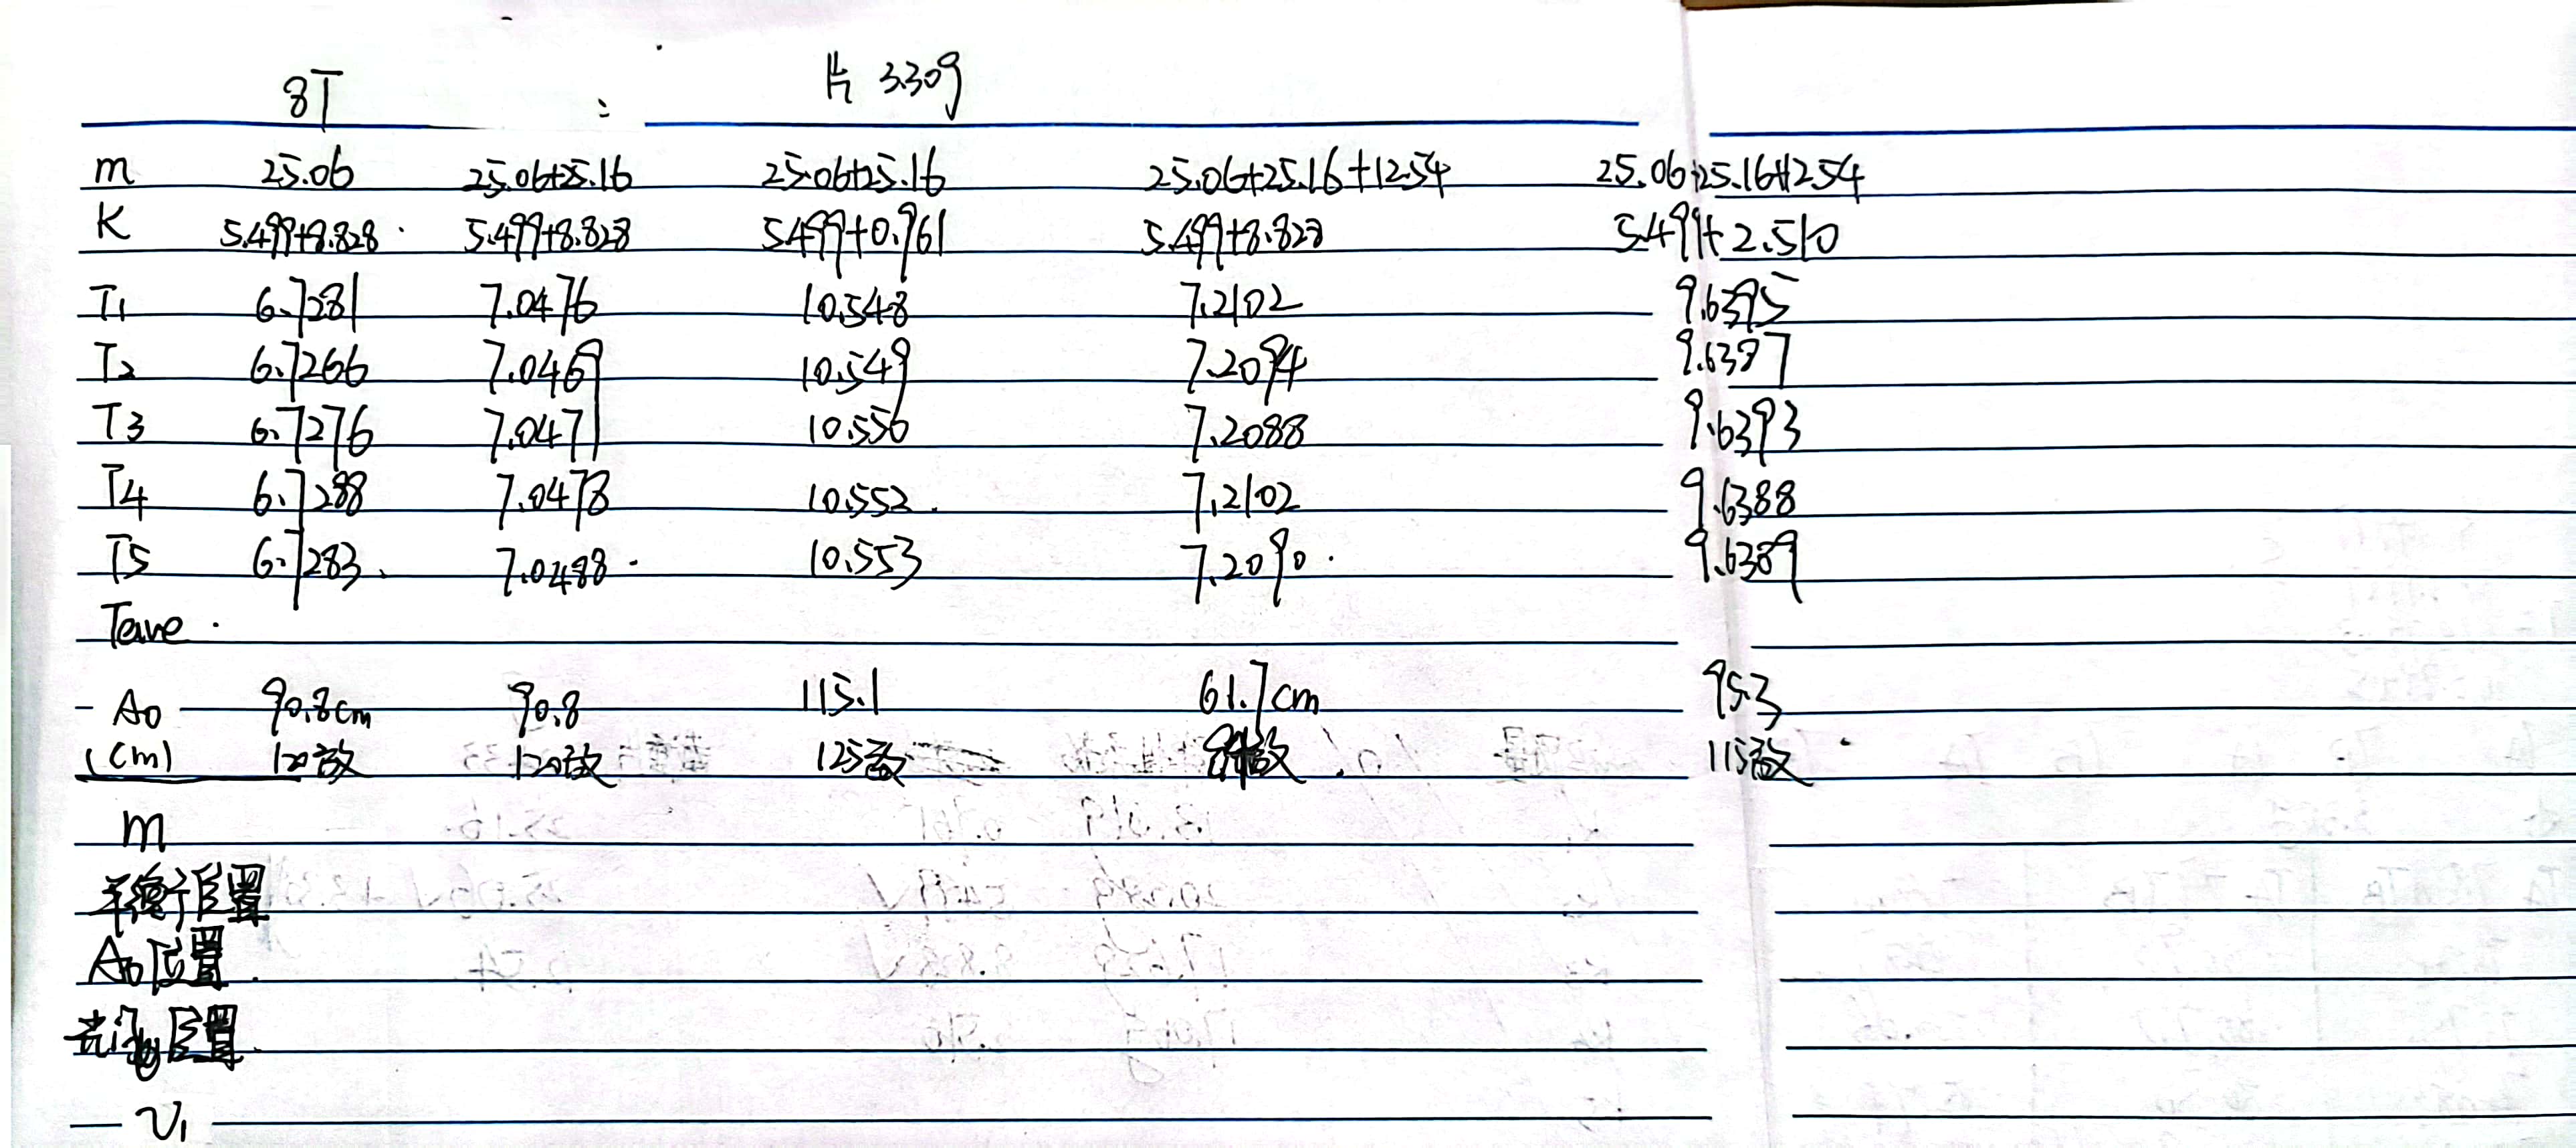 8T : 片 3.30g
m 25.06 25.06+25.16 25.06+25.16 25.06+25.16+12.54 25.06+25.16+12.54
K 5.499+8.828 5.499+8.828 5.499+0.961 5.499+8.828 5.499+2.510
T1 6.7281 7.0476 10.548 7.2102 9.6395
T2 6.7266 7.0469 10.549 7.2094 9.6387
T3 6.7276 7.0471 10.550 7.2088 9.6393
T4 6.7288 7.0478 10.552 7.2102 9.6388
T5 6.7283 7.0488 10.553 7.2090 9.6389
Tave
A0 90.8cm 90.8 115.1 61.7cm 95.3
(cm) 120放 120放 125放 放 115放
m
平衡位置
A0位置
光门位置
V1